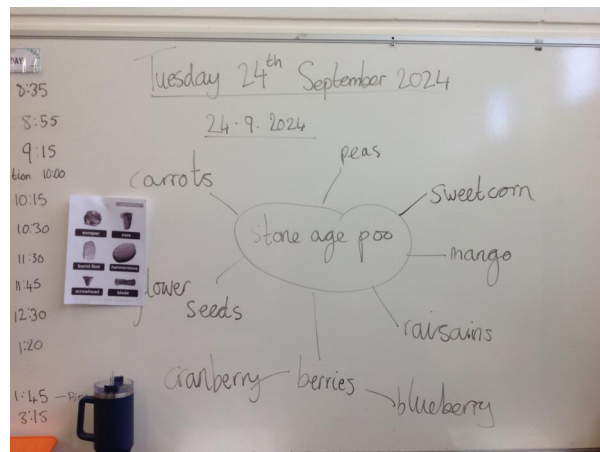 Tuesday 24th September 2024
24.9.2024
8:35
8:55
9:15
tion 10:00
10:15
10:30
11:30
11:45
12:30
1:20
1:45
3:15
scraper
core
burnt flint
hammerstone
arrowhead
blade
stone age poo
peas
carrots
sweetcorn
mango
raisains
berries
cranberry
blueberry
lower
seeds